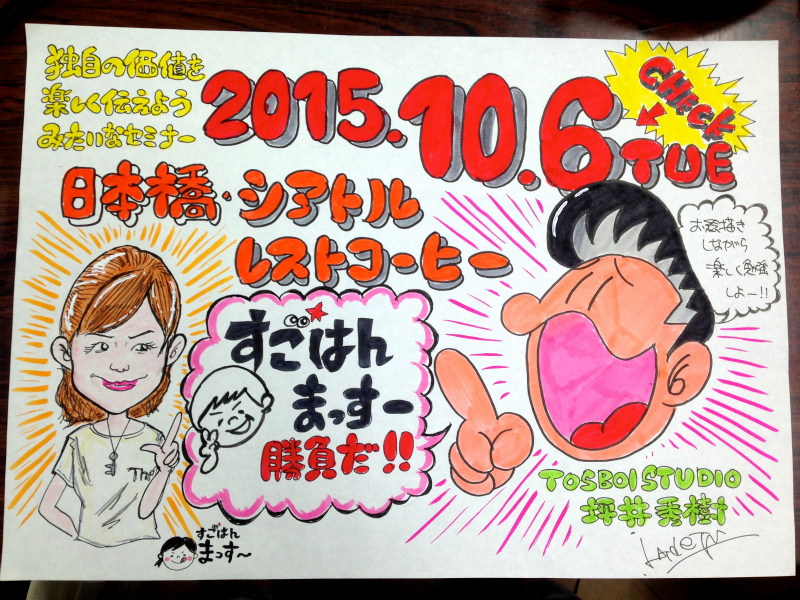 独自の価値を
楽しく伝えよう
みたいなセミナー
2015.10.6
TUE
CHECK
日本橋・シアトル
レストコーヒー
お絵描き
しながら
楽しく勉強
しよー!!
すごはん
まっすー
勝負だ!!
The
TOSBOI STUDIO
坪井秀樹
すごはん
まっす〜